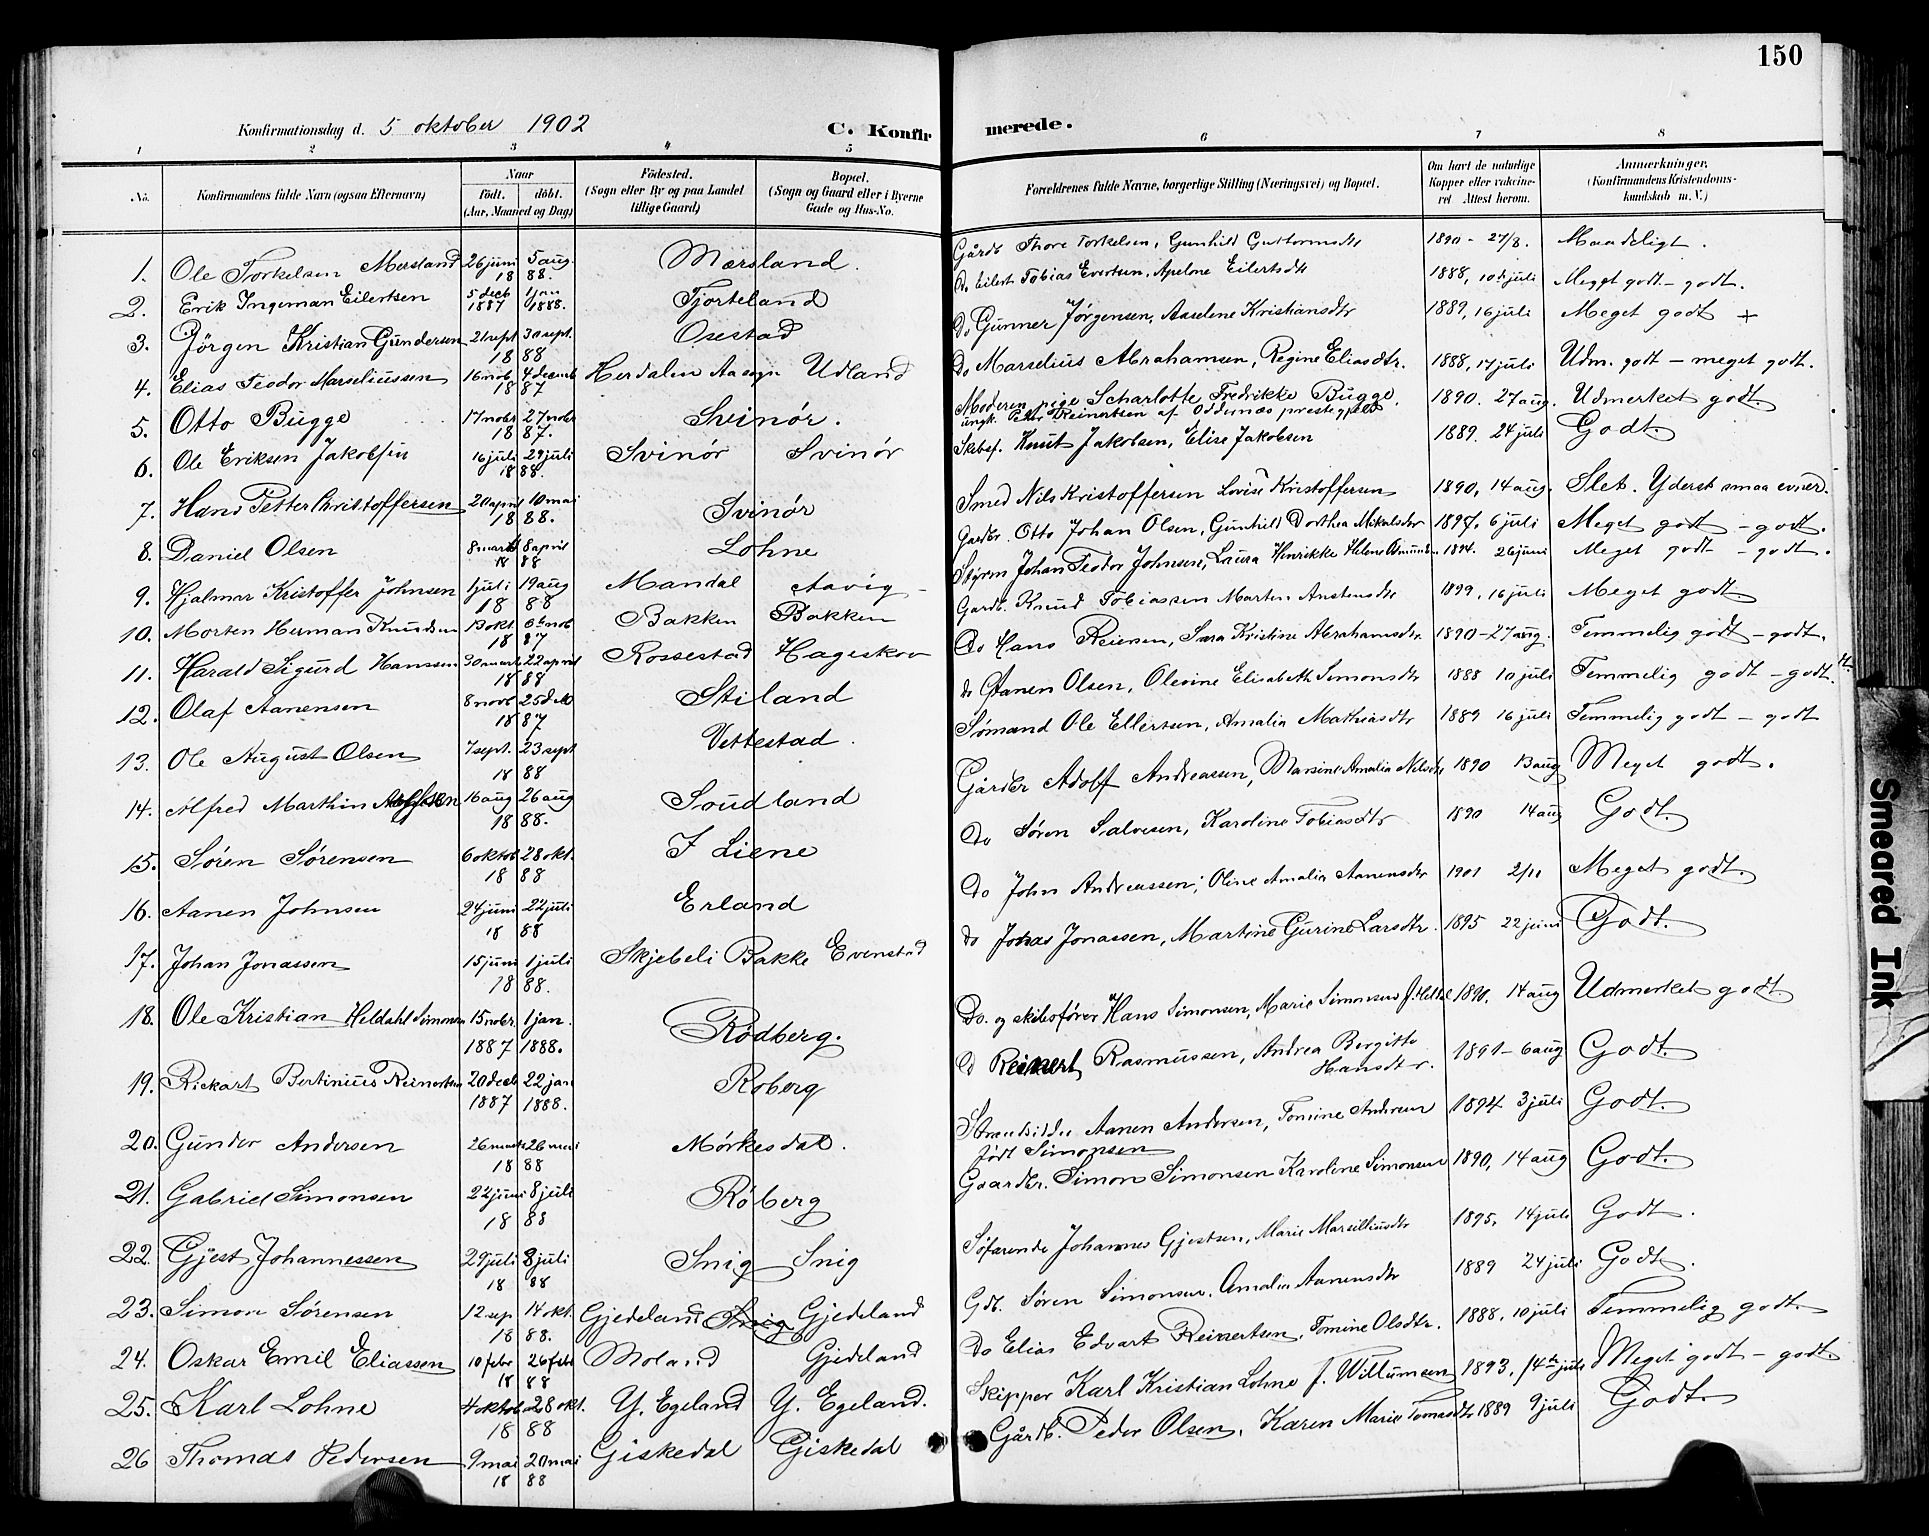 150
Konfirmationsdag d. 5 oktober 1902
C. Konfir merede.
1 2 3 4 5 6 7 8
No. Konfirmandens fulde Navn (ogsaa Efternavn) Naar Født. døbt. (Aar, Maaned og Dag) Fødested. (Sogn eller By og paa Landet tillige Gaard) Bopæl. (Sogn og Gaard eller i Byerne Gade og Hus-No. Forældrenes fulde Navne, borgerlige Stilling (Næringsvei) og Bopæl. Om havt de naturlige Kopper eller vakcineret Attest herom. Anmærkninger, (Konfirmandens Kristendomskundskab m.V.)
1. Ole Torkelsen Mersland 26 juni 5 aug. 1888. Mærsland. Gårdb Thore Torkelsen, Gunhild Guttormsdtr 1890 - 27/8. Maadeligt.
2. Erik Ingeman Eilertsen 5 decb 1887 1 jan 1888. Fjorteland Do Eilert Tobias Evertsen, Apelone Eilertsdtr 1888, 10de juli Meget godt - godt.
3. Jörgen Kristian Gundersen 21 sept 30 sept. 1888 Osestad Do Gunner Jørgensen, Aaselene Kristiansdtr 1889, 16 juli Meget godt +
4. Elias Teodor Marseliussen 16 nob 4 decemb 1887 Herdalen Aa sogn Udland Do Marselius Abrahamsen, Regine Eliasdtr. 1888, 17 juli Udm. godt - meget godt.
5. Otto Bugge 17 nobr 27 nobr 1887. Svinör. Moderen pige Scharlotte Fredrikke Bugge. 1890. 27 aug. Udmerket godt.
ungk. Peter Reinertsen af Oddernæs prestegjeld
6. Ole Eriksen Jakobsen 16 juli 29 juli 1888. Svinör Svinör Skibsf. Knut Jakobsen, Elise Jakobsen 1889. 24 juli Godt.
7. Hans Petter Christoffersen 20 april 10 mai 1888. Svinör Smed Nils Kristoffersen Lovise Kristoffersen 1890, 14 aug. Slet. Yderst smaa evner.
8. Daniel Olsen 8 marts 8 april 1888 Lohne Gardbr. Otto Johan Olsen, Gunhild Dorthea Mikalsdtr 1897, 6 juli Meget godt - godt.
9. Hjalmar Kristoffer Johnsen 1 juli 19 aug 1888 Mandal Aavig Styrm Johan Teodor Johnsen, Laura Henrikke Helene 1894. 26 juni Meget godt - godt.
10. Morten Herman Knudsen 13 okt. 6te nob 1887 Bakken Bakken Gardb. Knud Tobiassen Marten Anstensdtr 1899, 16 juli Meget godt.
11. Harald Sigurd Hanssen 30 marts 22 april 1888 Rossestad Hageskov Do Hans Reiersen, Sara Kristine Abrahamsdtr 1890 - 27 aug. Temmelig godt - godt.
12. Olaf Aanensen 8 novb 25 dcb 1887 Stiland do Aanen Olsen, Olevine Elisabeth Simonsdtr 1888 10 juli Temmelig godt - godt.
13. Ole August Olsen 7 sept. 23 sept 1888 Vettestad. Sømand Ole Ellertsen, Amalia Mathiasdtr 1889 16 juli Temmelig godt - godt
14. Alfred Marthin Adolfsen 16 aug 26 aug 1888. Soudland Gårdbr Adolf Andreassen, Marsine Amalia Nilsdtr 1890 13 aug Meget godt.
15. Sören Sörensen 6 oktob 28 okt. 1888 I Liene Do Søren Salvesen, Karoline Tobiasdtr 1890 14 aug Godt.
16. Aanen Johnsen 24 juni 22 juli 1888 Erland Do John Andreassen, Oline Amalia Aanensdtr 1901 2/11 Meget godt.
17. Johan Jonassen 15 juni 1 juli 1888. Skjebeli Bakke Evenstad do Johas Jonassen, Martine Gurine Larsdtr. 1895 22 juni Godt.
18. Ole Kristian Heldahl Simonsen 15 nobr. 1887 1 jan. 1888. Rödberg. Do. og skibsfører Hans Simonsen, Marie Simonsen f. Heldal 1890. 14 aug Udmerket godt.
19. Rickart Bertinius Reinertsen 20 decb 1887 22 jan 1888. Roberg D Reinert Rasmussen, Andrea Bergitte Hansdtr. 1891 - 6 aug Godt.
20. Gunder Andersen 26 marts 26 mai 1888 Mörkesdal. Strandsidder Aanen Andersen, Tomine Andersen 1894 3 juli Godt.
født Simonsen
21. Gabriel Simonsen 22 juni 8 juli 1888 Röberg Gaardbr. Simon Simonsen Karoline Simonsen 1890, 14 aug Godt.
22. Gjest Johannessen 29 juli 8 juli 1888 Snig Snig Söfarende Johannes Gjestsen, Marie Marselliusdtr 1895, 14 juli Godt.
23. Simon Sörensen 12 sep 14 okt. 1888. Gjedeland Snig Gjedeland Gdb. Søren Simonsen, Amalia Aanensdtr 1889 24 juli Godt.
24. Oskar Emil Eliassen 10 febr 26 febr 1888 Moland Gjedeland Do Elias Edvart Reinertsen, Tomine Olsdtr. 1888, 10 juli Temmelig godt.
25. Karl Lohne 4 oktob 28 okt. 1888 Y. Egeland Y. Egeland. Skipper Karl Kristian Lohne f. Willumsen 1893, 14de juli Meget godt - godt.
26 Thomas Pedersen 9 mai 20 mai 1888 Giskedal Giskedal Gårdb. Peder Olsen, Karen Marie Tomasdtr 1889 9 juli Godt.
Smeared Ink